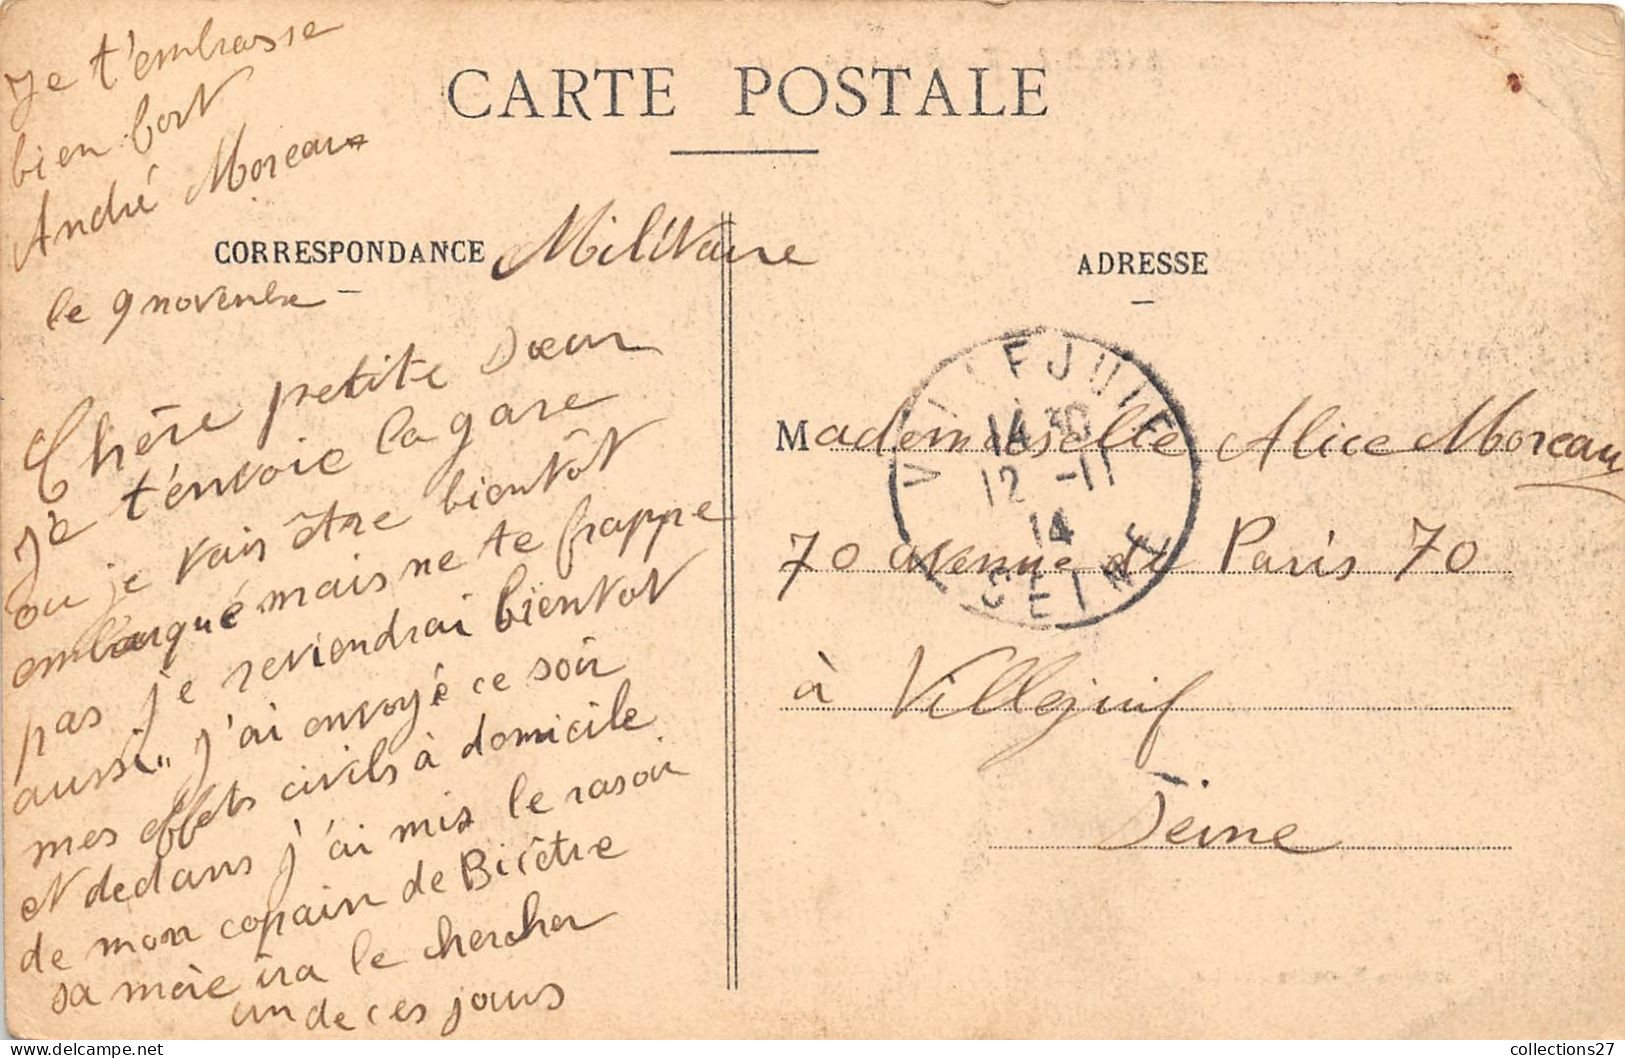 Je t'embrasse
bien fort
André Moreau
CARTE POSTALE
CORRESPONDANCE Militaire
ADRESSE
le 9 novembre
Chère petite sœur
Je t'envoie la gare
ou je vais être bientôt
embarqué mais ne te frappe
pas je reviendrai bientot
aussi,, j'ai envoyé ce soir
mes effets civils à domicile
et dedans j'ai mis le rasoir
de mon copain de Bicêtre
sa mère ira le chercher
un de ces jours
VILLEJUIF
14 30
12 -11
14
SEINE
Mademoiselle Alice Moreau
70 avenue de Paris 70
à Villejuif
Seine
collections27